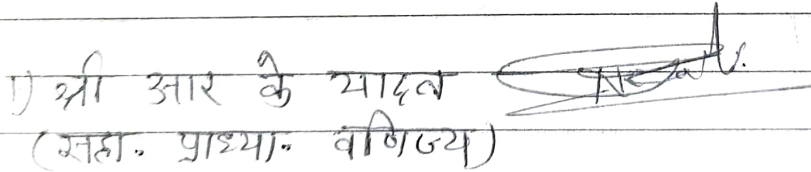 1) श्री आर के यादव
(सहा. प्राध्या. वाणिज्य)